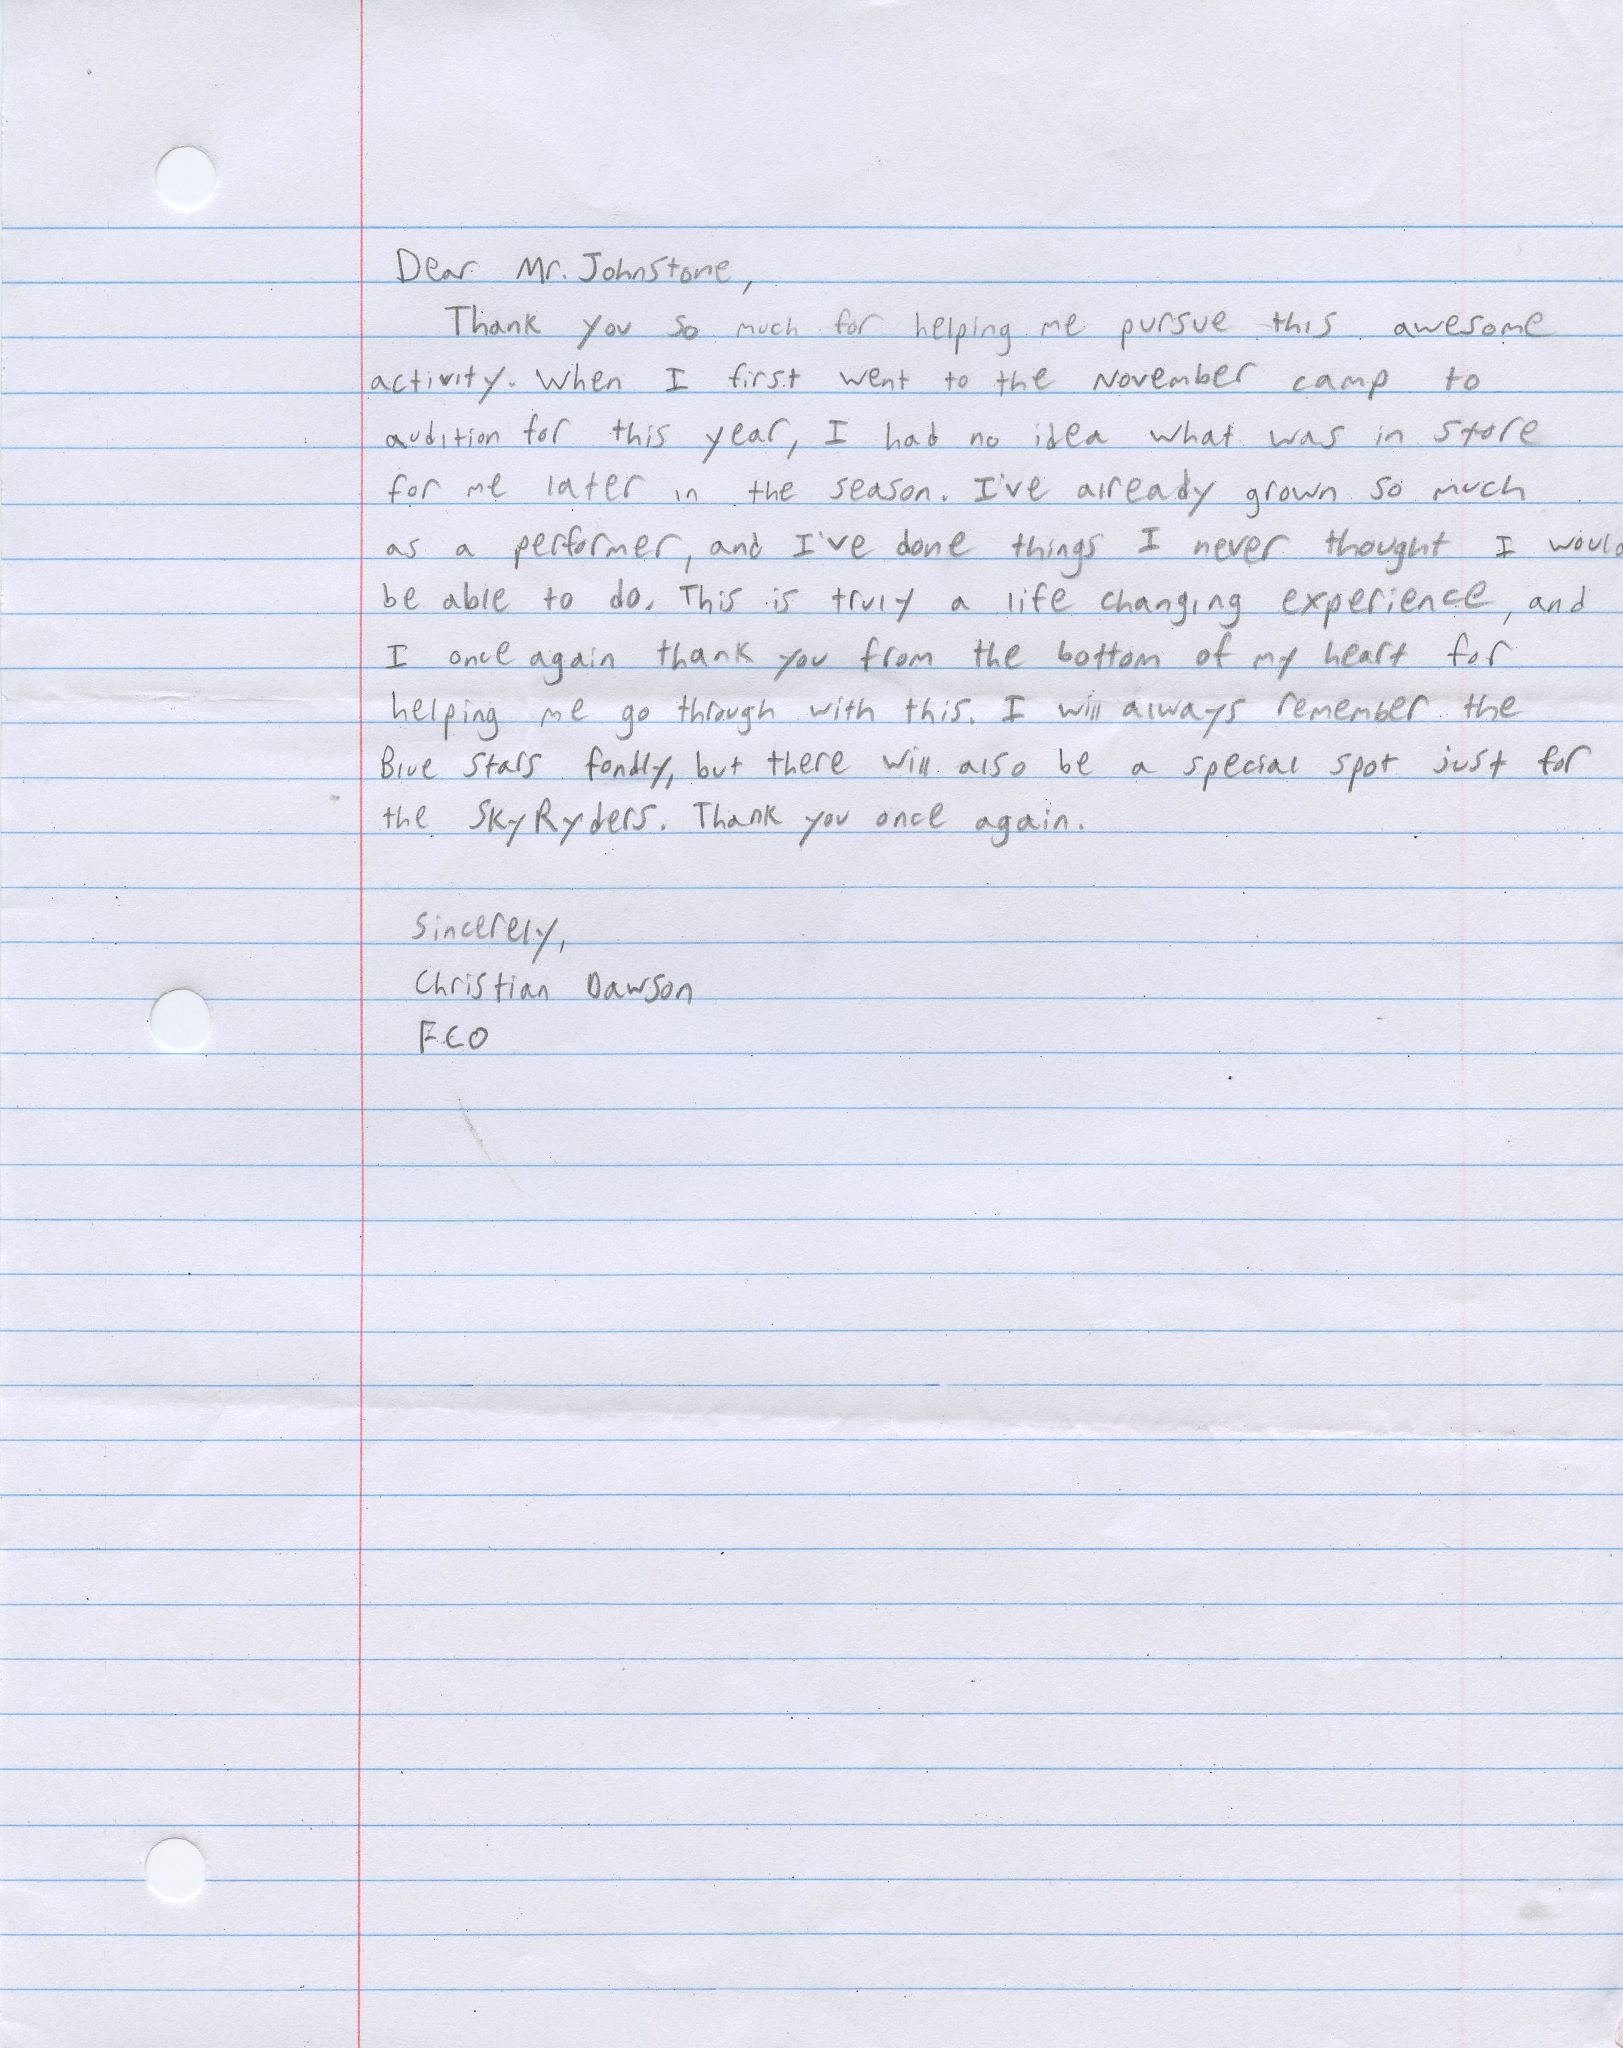 Dear Mr. Johnstone,
Thank you so much for helping me pursue this awesome
activity. When I first went to the November camp to
audition for this year, I had no idea what was in store
for me later in the season. I've already grown so much
as a performer, and I've done things I never thought I would
be able to do. This is truly a life changing experience, and
I once again thank you from the bottom of my heart for
helping me go through with this. I will always remember the
Blue Stars fondly, but there will also be a special spot just for
the SkyRyders. Thank you once again.
Sincerely,
Christian Dawson
FCO